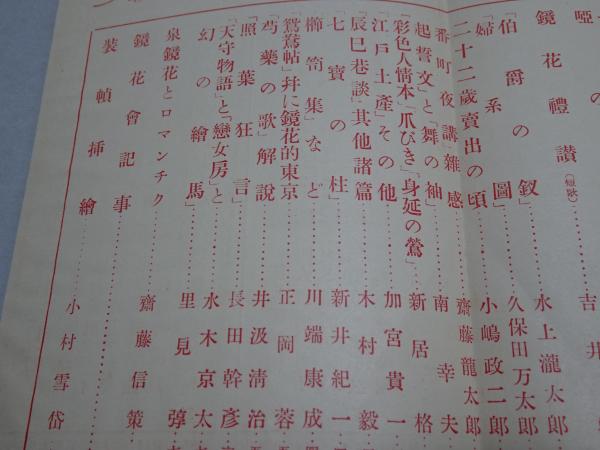 啞
鏡花禮讃(短歌)…吉井
「伯爵の釵」…水上瀧太郎
「婦系圖」…久保田万太郎
二十二歲賣出の頃…小嶋政二郎
番町夜講」雜感…齋藤龍太郎
起誓文」と「舞の袖」…南幸夫
「彩色人情本」「爪びき」「身延の鶯」…新居格
「江戶土產」その他…加宮貴一
「辰巳巷談」其他諸篇…木村毅
「七寶の柱」…新井紀一
櫛笥集」など…川端康成
鴛鴦帖」幷に鏡花的東京…正岡蓉
「芍藥の歌」解說…井汲淸治
「照葉狂言」…長田幹彥
「天守物語」と「戀女房」と…水木京太
幻の繪馬」…里見弴
泉鏡花とロマンチク…齋藤信策
鏡花會記事
裝幀揷繪…小村雪岱